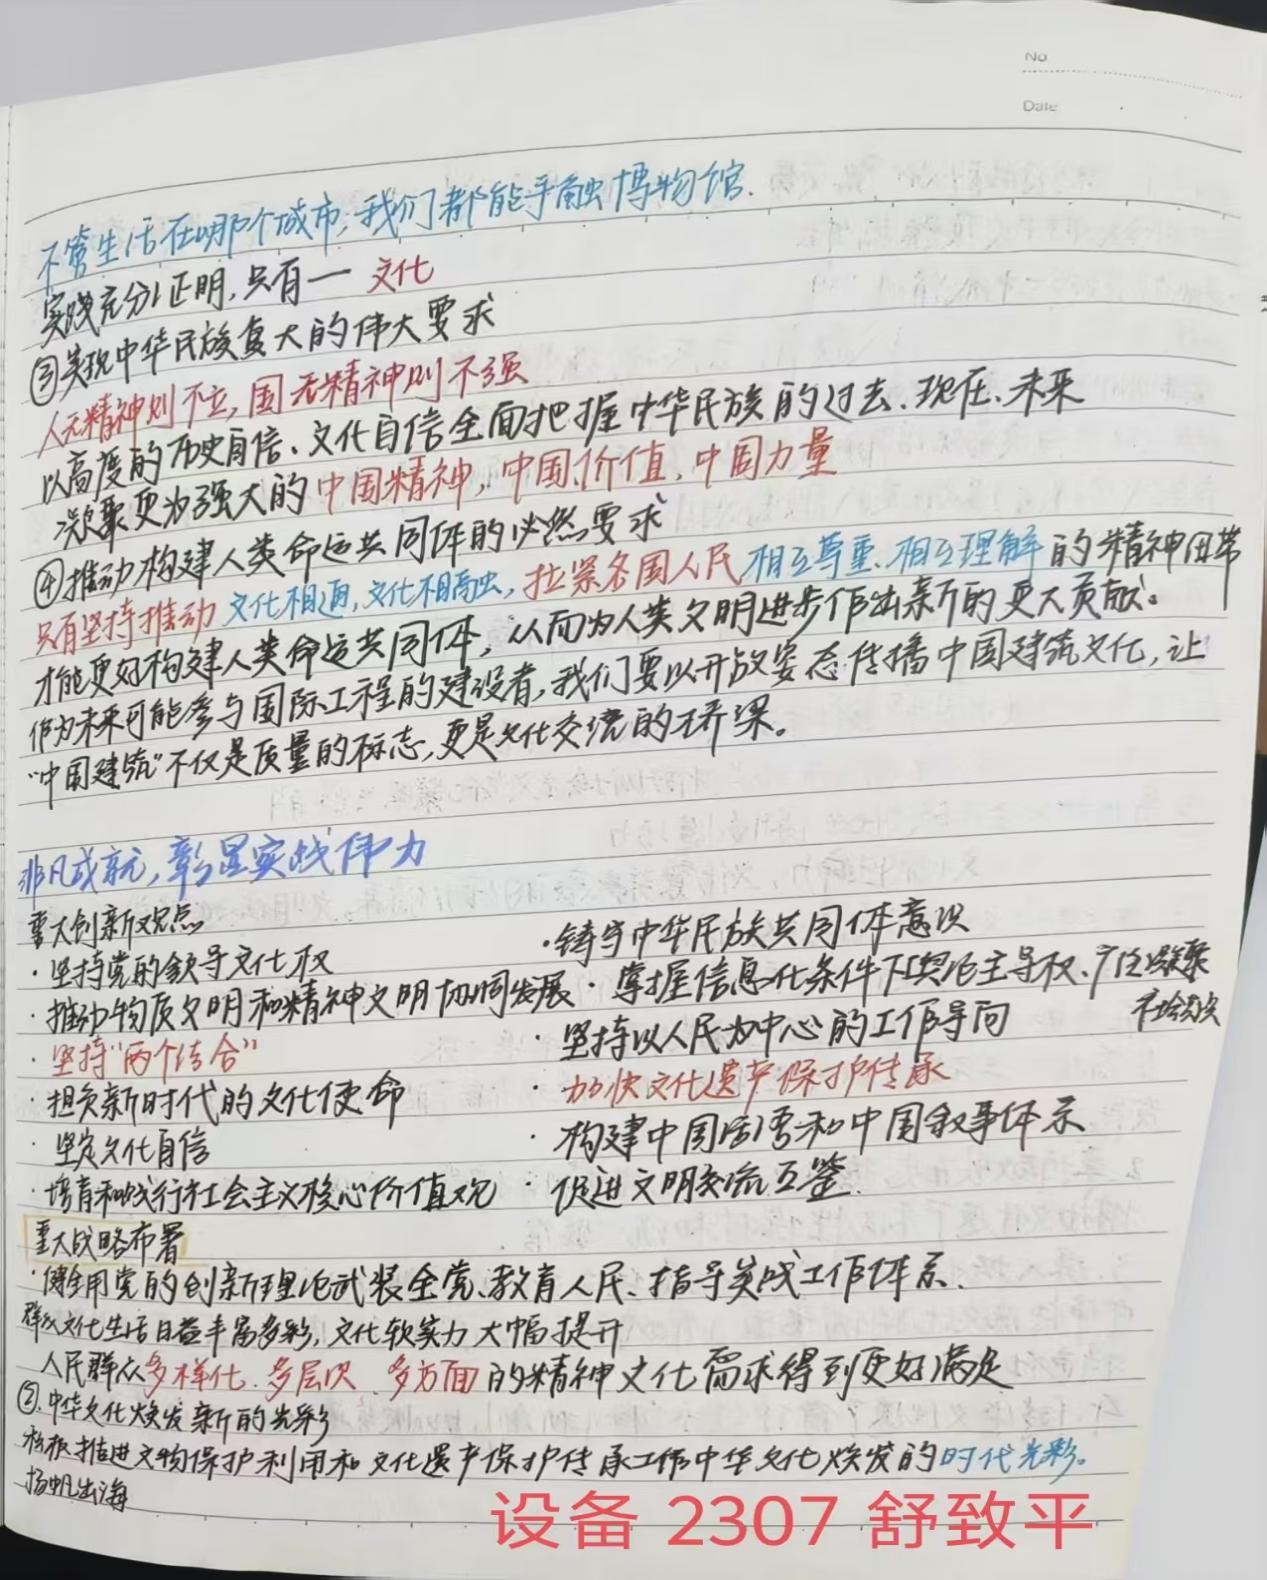 No
Date
不管生活在哪个城市,我们都能手触博物馆.
实践充分证明,只有一 文化
③实现中华民族复大的伟大要求
人无精神则不立,国无精神则不强
以高度的历史自信、文化自信全面把握中华民族的过去、现在、未来
凝聚更为强大的中国精神,中国价值,中国力量
④推动构建人类命运共同体的必然要求
只有坚持推动 文化相通,文化相融,拉紧各国人民 相互尊重、相互理解 的精神纽带
才能更好构建人类命运共同体,从而为人类文明进步作出新的更大贡献。
作为未来可能参与国际工程的建设者,我们要以开放姿态传播中国建筑文化,让
“中国建筑”不仅是质量的标志,更是文化交流的桥梁。
非凡成就,彰显实践伟力
重大创新观点
·坚持党的领导文化权
·推动物质文明和精神文明协同发展
·坚持“两个结合”
·担负新时代的文化使命
·坚定文化自信
·培育和践行社会主义核心价值观
·铸牢中华民族共同体意识
·掌握信息化条件下舆论主导权、广泛凝聚
社会共识
·坚持以人民为中心的工作导向
·加快文化遗产保护传承
·构建中国话语和中国叙事体系
·促进文明交流互鉴.
重大战略布署
·健全用党的创新理论武装全党、教育人民、指导实践工作体系.
群众文化生活日益丰富多彩,文化软实力大幅提升
人民群众多样化、多层次、多方面的精神文化需求得到更好满足
②.中华文化焕发新的光彩
积极推进文物保护利用和文化遗产保护传承工作中华文化焕发的时代光彩。
扬帆出海
设备 2307 舒致平